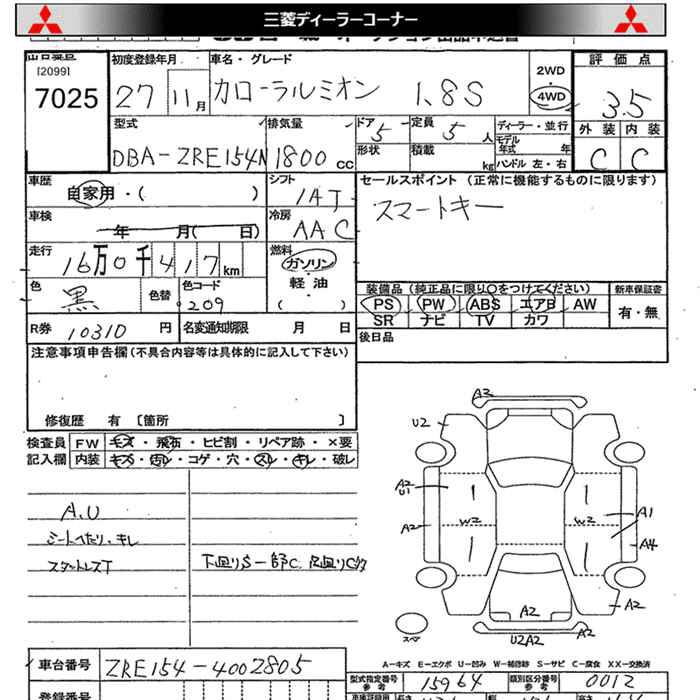 三菱ディーラーコーナー
[2099]
7025
初度登録年月
27 11月
車名・グレード
カローラルミオン 1.8S
2WD
4WD
評価点
3.5
外装 内装
C C
型式
DBA-ZRE154N
排気量
1800 cc
ドア 5
定員 5 人
形状
積載 kg
ディーラー・並行
モデル年式 年
ハンドル 左・右
車歴
自家用・( )
シフト
IAT
セールスポイント (正常に機能するものに限ります)
スマートキー
車検
年 月( 日)
冷房
AAC
走行
16万0千417km
燃料
ガソリン
軽・油
( )
色
黒
色替
色コード
209
装備品(純正品に限り○をつけてください)
新車保証書
PS PW ABS エアB AW
SR ナビ TV カワ
有・無
R券 10310 円
名変通知期限 月 日
後日品
注意事項申告欄(不具合内容等は具体的に記入して下さい)
修復歴 有 [箇所 ]
検査員 FW キズ・飛石・ヒビ割・リペア跡・×要
記入欄 内装 キズ・汚レ・コゲ・穴・スレ・キレ・破レ
A.U
シートへたり・キレ
スタットレスT
下廻りS一部C
A2
U2
A2
U1
A2
W2
W2
A1
A4
A2
A2
U2A2
スペア
A-キズ E-エクボ U-凹み W-補修跡 S-サビ C-腐食 XX-交換済
車台番号 ZRE154-4002805
型式指定番号
参考
15964
類別区分番号
参考
0012